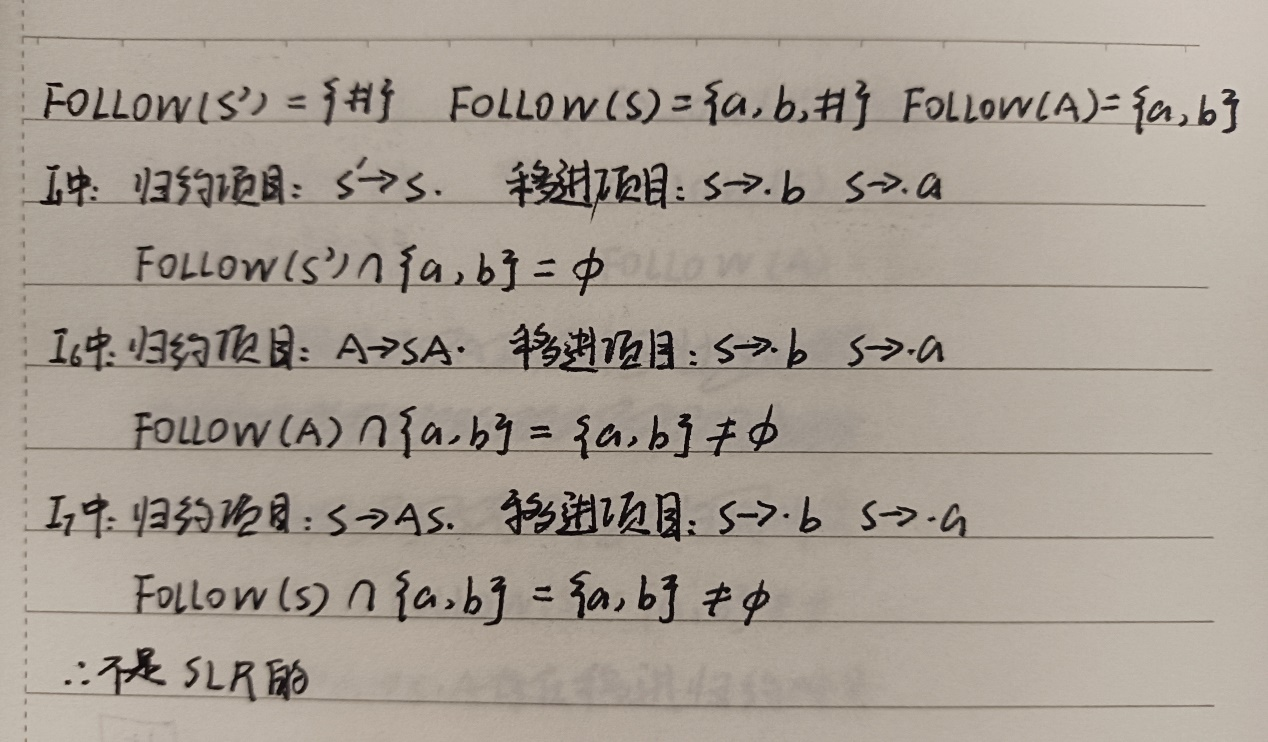 FOLLOW(S') = {#} FOLLOW(S) = {a, b, #} FOLLOW(A) = {a, b}
I₁中: 归约项目: S'→S. 移进项目: S→.b S→.a
FOLLOW(S') ∩ {a, b} = ϕ
I₆中: 归约项目: A→SA. 移进项目: S→.b S→.a
FOLLOW(A) ∩ {a, b} = {a, b} ≠ ϕ
I₇中: 归约项目: S→AS. 移进项目: S→.b S→.a
FOLLOW(S) ∩ {a, b} = {a, b} ≠ ϕ
∴不是 SLR的